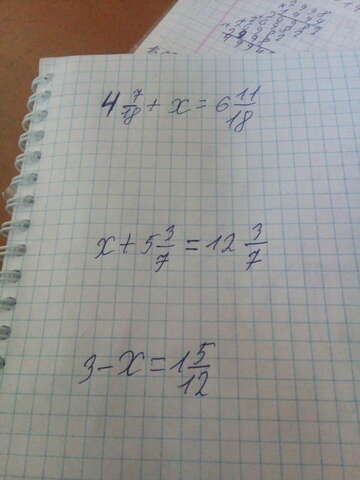 4 7/18 + x = 6 11/18
x + 5 3/7 = 12 3/7
3 - x = 1 5/12